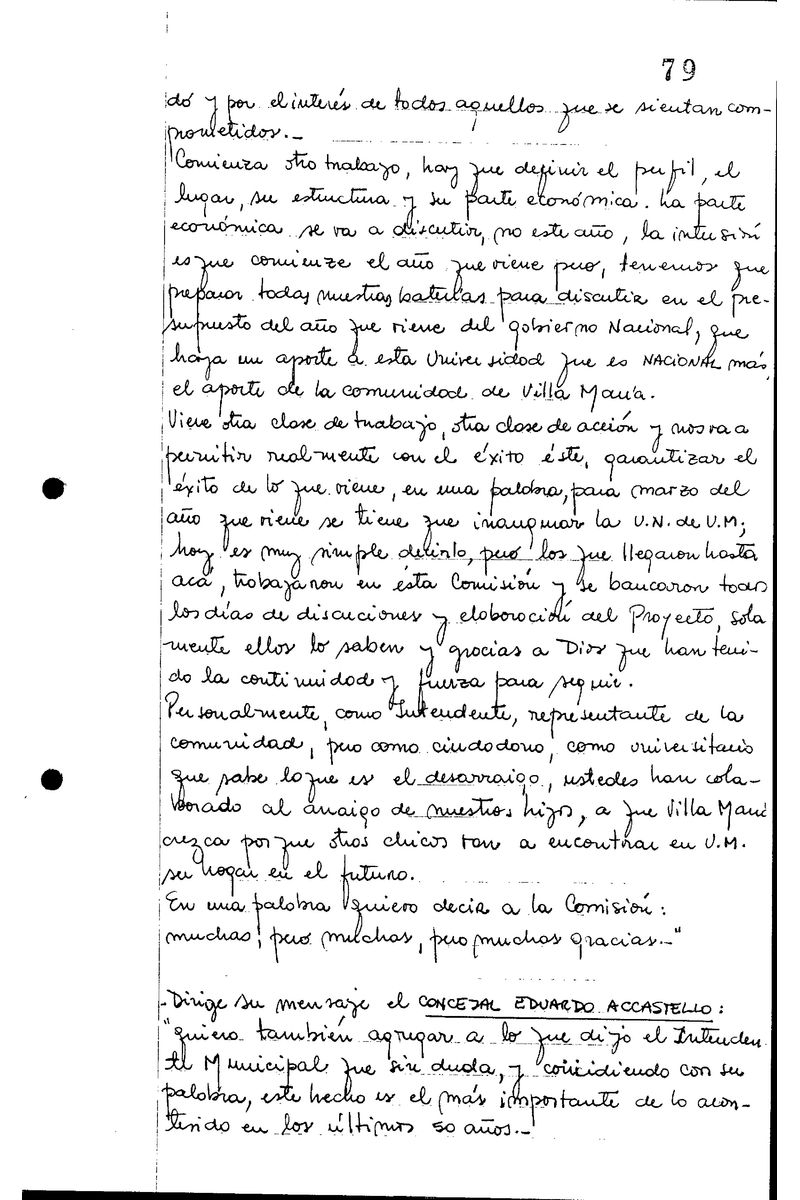 79
dó y por el interés de todos aquellos que se sientan com-
prometidos.-
"Comienza otro trabajo, hay que definir el perfil, el
lugar, su estructura y su parte económica. La parte
económica se va a discutir, no este año, la intensión
es que comienze el año que viene pero, tenemos que
preparar todas nuestras baterías para discutir en el pre-
supuesto del año que viene del gobierno Nacional, que
haya un aporte a esta Universidad que es NACIONAL más,
el aporte de la comunidad de Villa María.
Viene otra clase de trabajo, otra clase de acción y nos va a
permitir realmente con el éxito éste, garantizar el
éxito de lo que viene, en una palabra, para marzo del
año que viene se tiene que inaugurar la U.N. de V.M;
hoy es muy simple decirlo, pero los que llegaron hasta
acá, trabajaron en ésta Comisión y se bancaron todos
los días de discuciones y elaboración del Proyecto, sola
mente ellos lo saben y gracias a Dios que han teni-
do la continuidad y fuerza para seguir.
Personalmente, como Intendente, representante de la
comunidad, pero como ciudadano, como universitario
que sabe lo que es el desarraigo, ustedes han cola-
borado al arraigo de nuestros hijos, a que Villa María
crezca porque otros chicos van a encontrar en V.M.
su hogar en el futuro.
En una palabra quiero decir a la Comisión:
muchas, pero muchas, pero muchas gracias.-"
-Dirige su mensaje el CONCEJAL EDUARDO ACCASTELLO:
"quiero también agregar a lo que dijo el Intenden
te Municipal que sin duda, y coincidiendo con su
palabra, este hecho es el más importante de lo acon-
tesido en los últimos 50 años.-